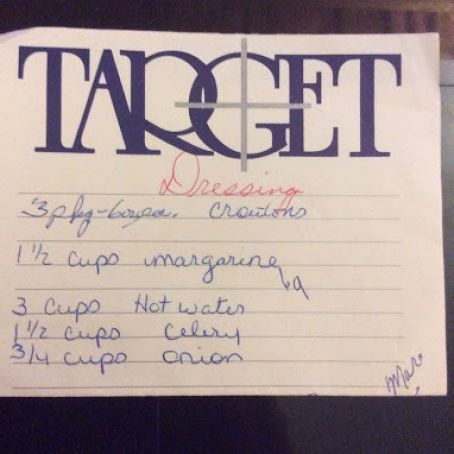 TARGET
Dressing
3 pkg-6oz ea. Croutons
1 1/2 cups margarine
3 cups Hot water
1 1/2 cups Celery
3/4 cups onion